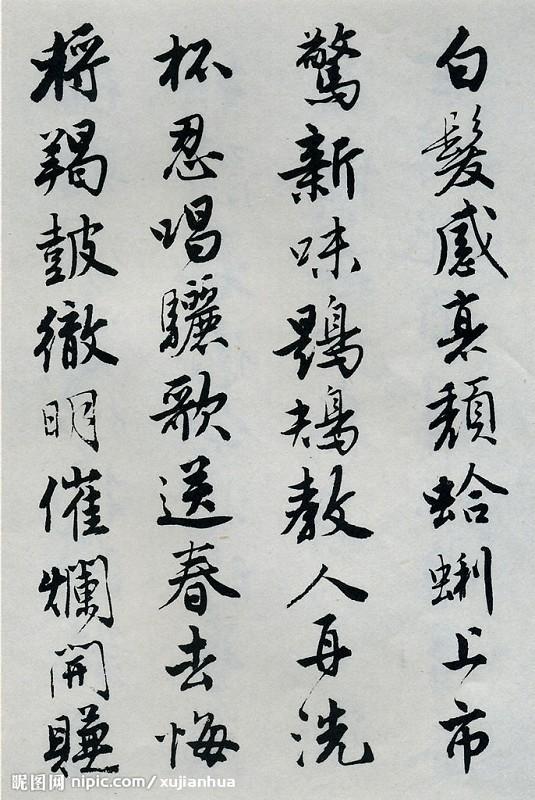 白髮感衰頹蛤蜊上市
驚新味鶗鴂教人再洗
杯忍唱驪歌送春去悔
將羯鼓徹明催爛開賺
昵图网 nipic.com/xujianhua